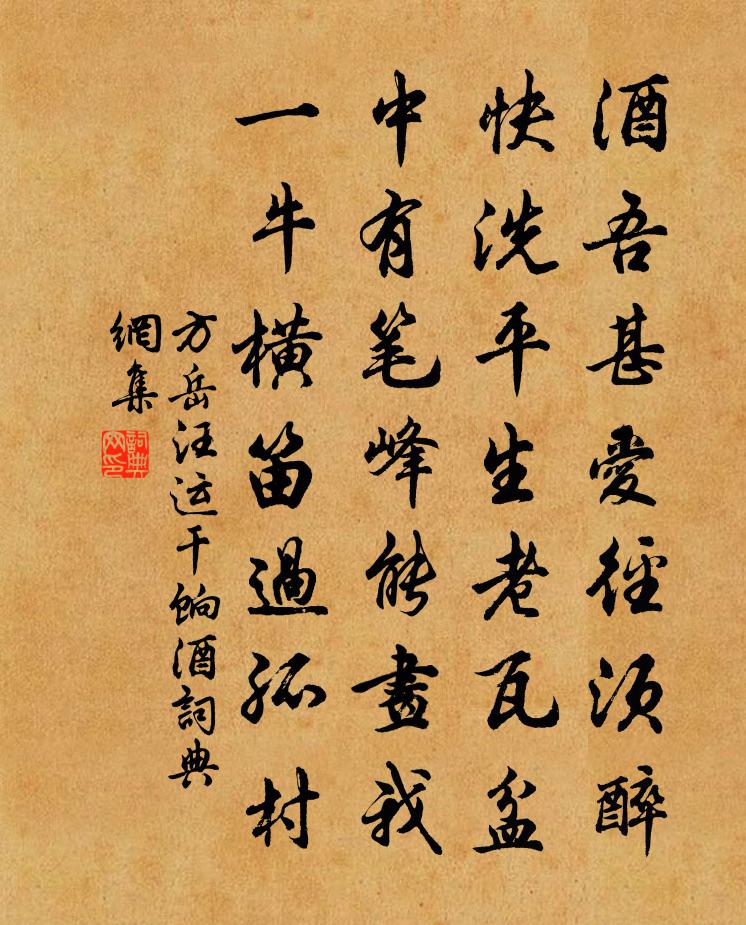 酒吾甚愛徑須醉
快洗平生老瓦盆
中有笔峰能畫我
一牛橫笛過孤村
方岳汪运干餉酒詞典
網集
詞典
网印